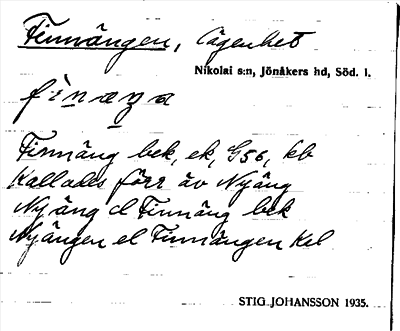 Finnängen, lägenhet
Nikolai s:n, Jönåkers hd, Söd. l.
Finnäng bek, ek, G56, kb
Kallades förr äv Nyäng
Nyäng el Finnäng bek
Nyängen el Finnängen Kbl
STIG JOHANSSON 1935.